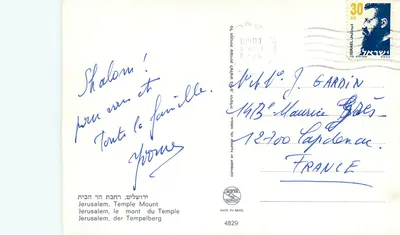 Shalom!
pour vous et
Toute la famille.
Yvonne
ירושלים, רחבת הר הבית
Jerusalem, Temple Mount
Jerusalem, le mont du Temple
Jerusalem, der Tempelberg
30
ISRAEL
ישראל
J. GARDIN
14 Bd Maurice
12700 Capdenac
FRANCE
MADE IN ISRAEL
4829